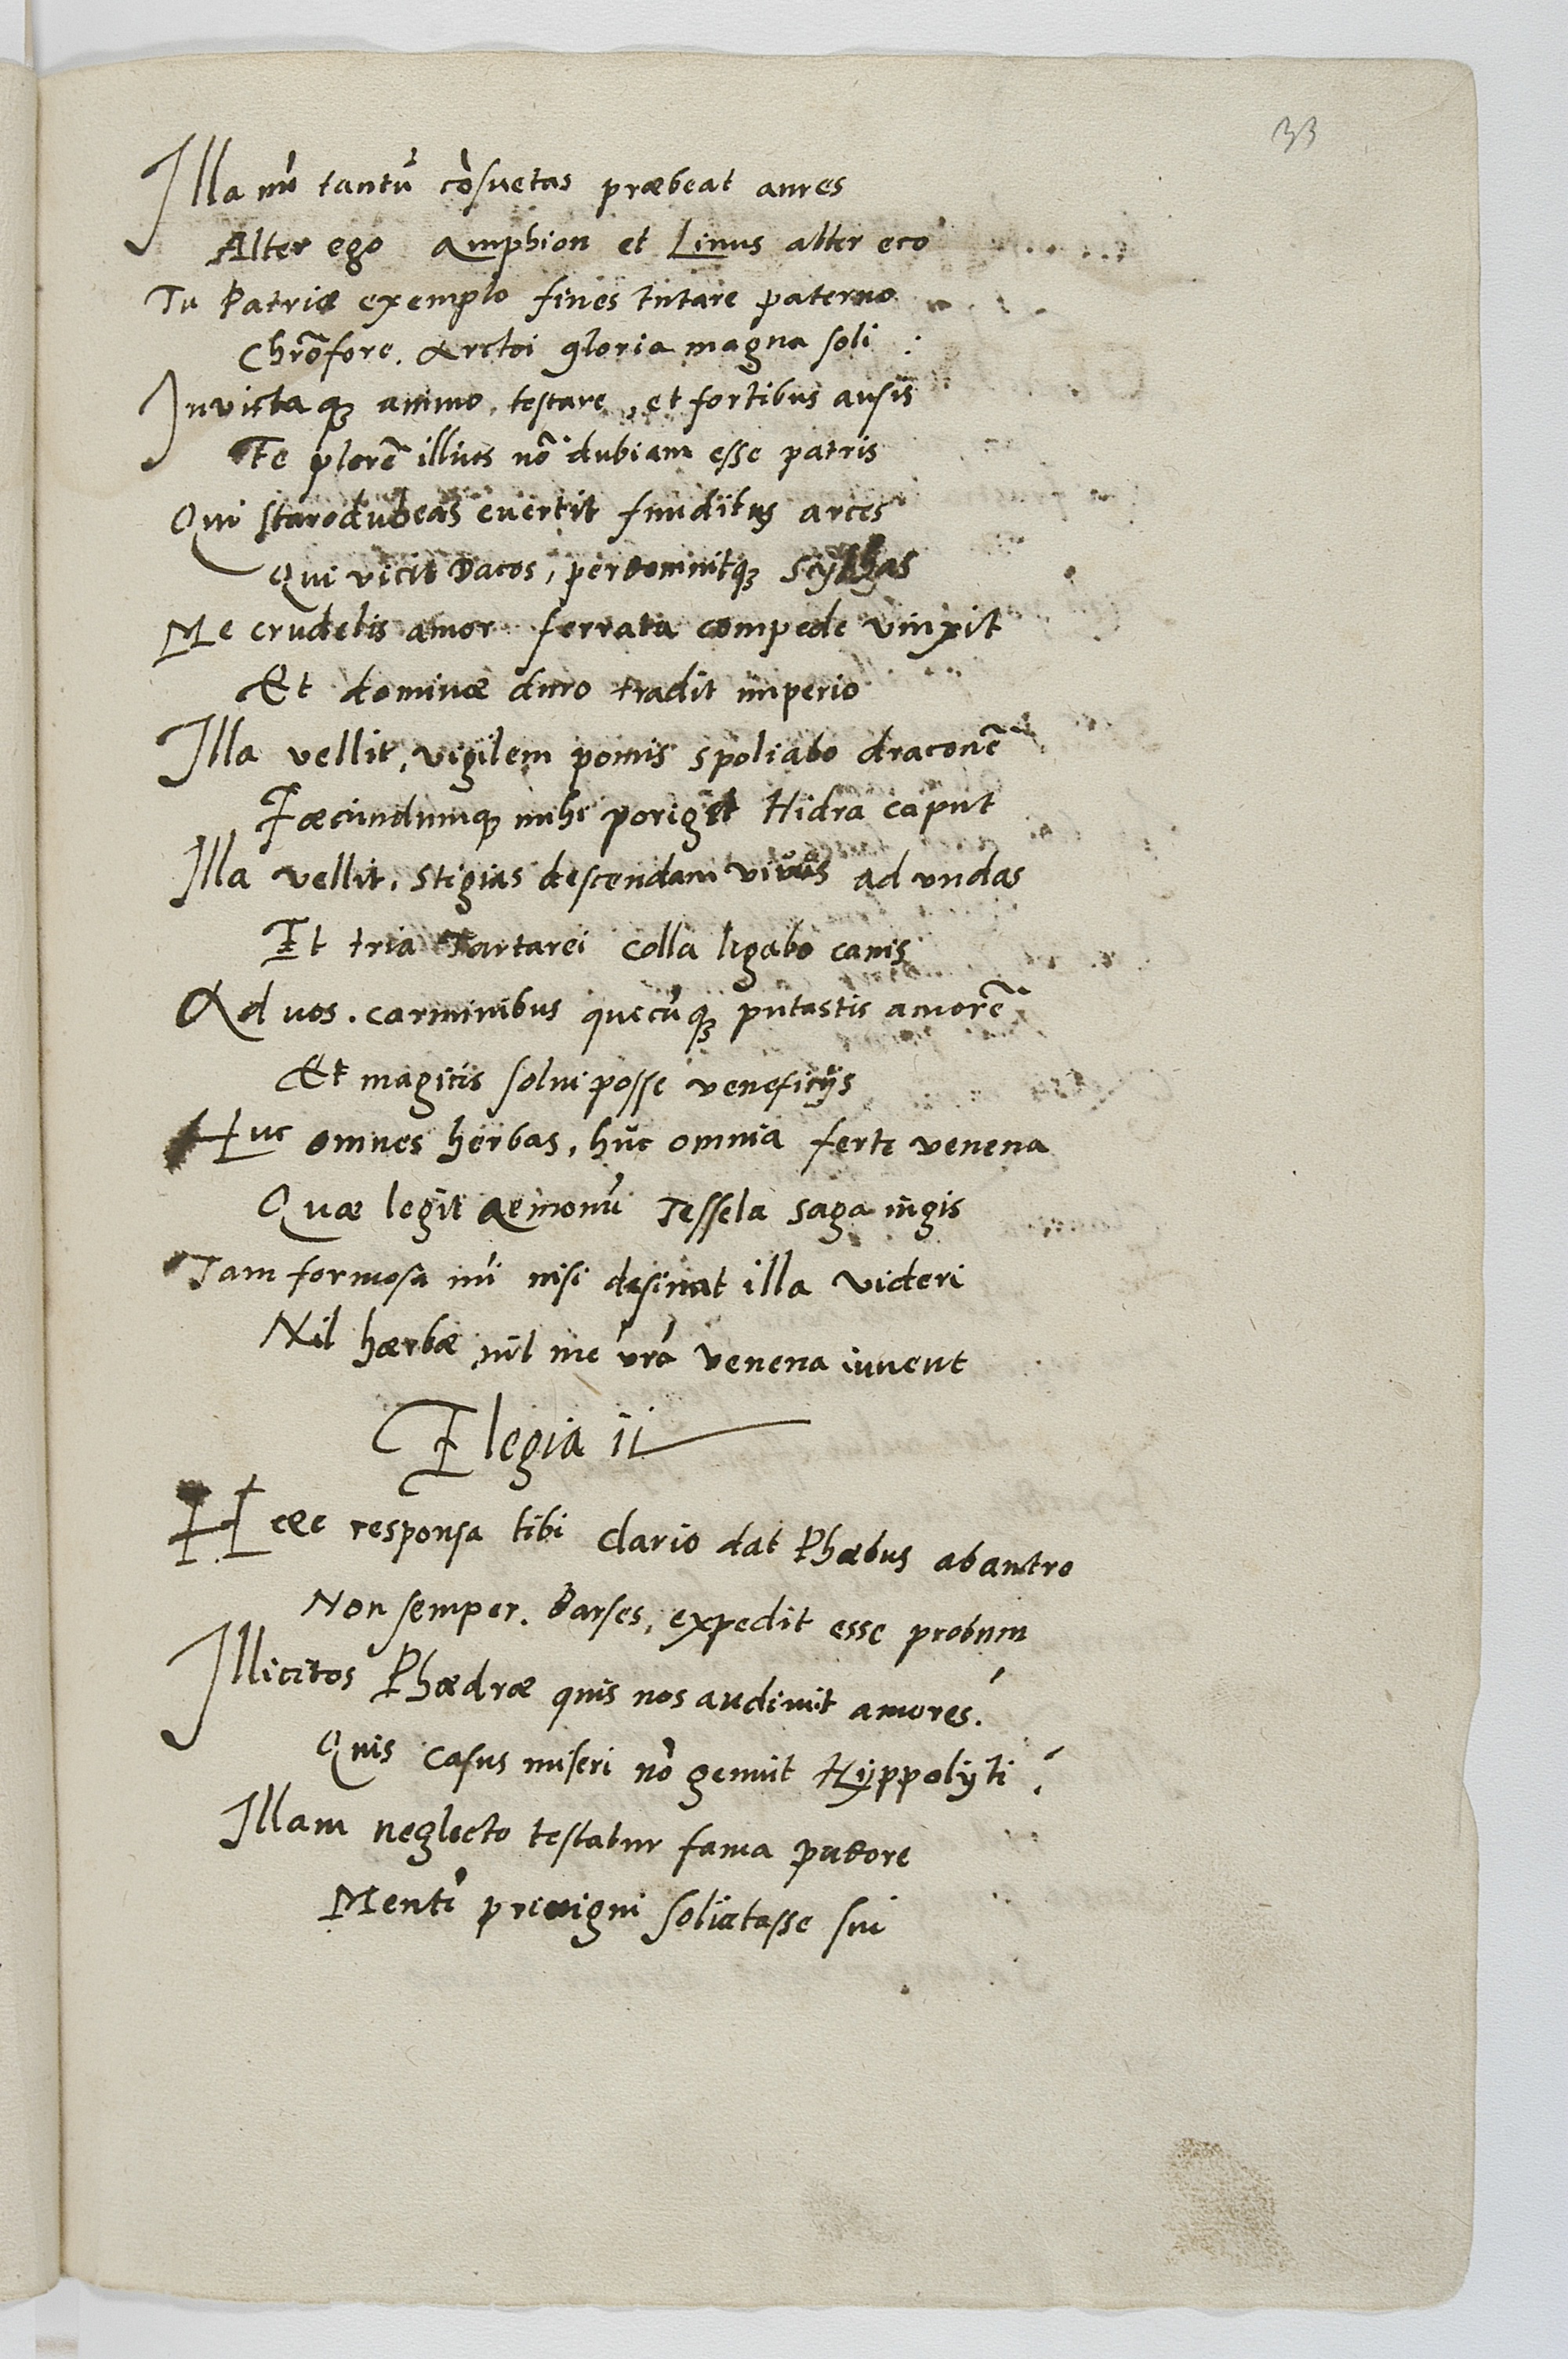 33
Illa mi tantū cōsuetas præbeat aures
Alter ego Amphion et Linus alter ero
Tu Patriæ exemplo fines tutare paterno
Chrōfore. Arctoi gloria magna soli :
Invictaq; animo, testare, et fortibus ausis
Te plorē illius nō dubiam esse patris
Qui starodubeas euertit funditus arces
Qui vicit Dacos, perdomuitq; Scythas
Me crudelis amor ferrata compede vinxit
Et dominæ duro tradit imperio
Illa vellit, vigilem pomis spoliabo draconē
Fæcundumq; mihi poriget Hidra caput
Illa vellit, stigias descendam vivus ad vndas
Et tria Tartarei colla ligabo canis
Ad vos. carminibus quecūq; putastis amorē
Et magicis solui posse veneficijs
Huc omnes herbas, hūc omnia ferte venena
Quæ legit Aemonū Tessela saga iugis
Tam formosa mi nisi desinat illa videri
Nil hærbæ nil me vrā venena iuuent
Elegia ii
Hæc responsa tibi clario dat Phœbus ab antro
Non semper. Parses, expedit esse probum
Illicitos Phædræ quis nos audiuit amores?
Quis casus miseri nō gemuit Hyppolyti?
Illam neglecto testatur fama pudore
Mentē priuigni solicitasse sui